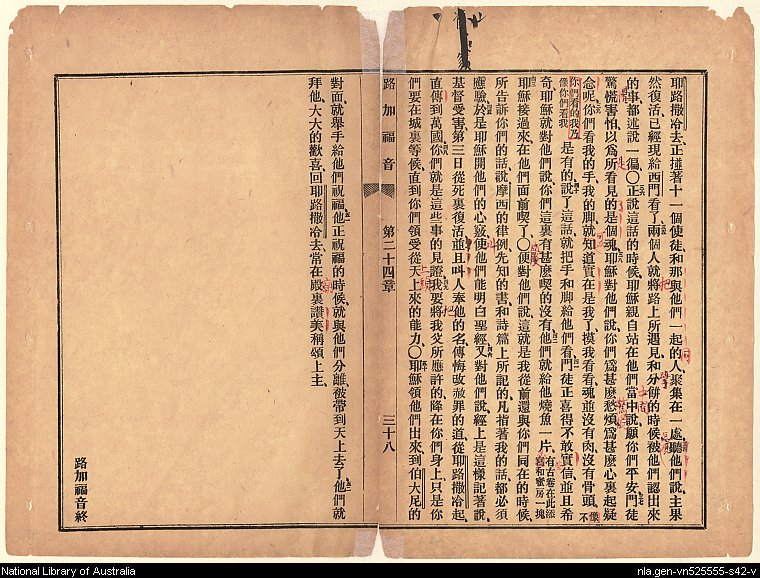 耶路撒冷去正撞著十一個使徒和那與他們一起的人聚集在一處聽他們說主果
然復活已經現給西門看了兩個人就將路上所遇見和分餅的時候被他們認出來
的事都述說一徧〇正說這話的時候耶穌親自站在他們當中說願你們平安門徒
驚慌害怕以爲所看見的是個魂耶穌對他們說你們爲甚麽愁煩爲甚麽心裏起疑
念呢你們看我的手我的脚就知道實在是我了摸我看看魂並沒有肉沒有骨頭
你們看的我乃是有的說了這話就把手和脚給他們看門徒正喜得不敢實信並且希
奇耶穌就對他們說你們這裏有甚麽喫的沒有他們就給他燒魚一片有古卷在此添寫和蜜房一塊
耶穌接過來在他們面前喫了〇便對他們說這就是我從前還與你們同在的時候
所告訴你們的話說摩西的律例先知的書和詩篇上所記的凡指著我的話都必須
應驗於是耶穌開他們的心竅使他們能明白聖經又對他們說經上是這樣記著說
基督受害第三日從死裏復活並且叫人奉他的名傳悔改赦罪的道從耶路撒冷起
直傳到萬國你們就是這些事的見證我要將我父所應許的降在你們身上只是你
們要在城裏等候直到你們領受從天上來的能力〇耶穌領他們出來到伯大尼的
路加福音 第二十四章 三十八
對面就舉手給他們祝福他正祝福的時候就與他們分離被帶到天上去了他們就
拜他大大的歡喜回耶路撒冷去常在殿裏讚美稱頌上主
路加福音終
National Library of Australia
nla.gen-vn525555-s42-v